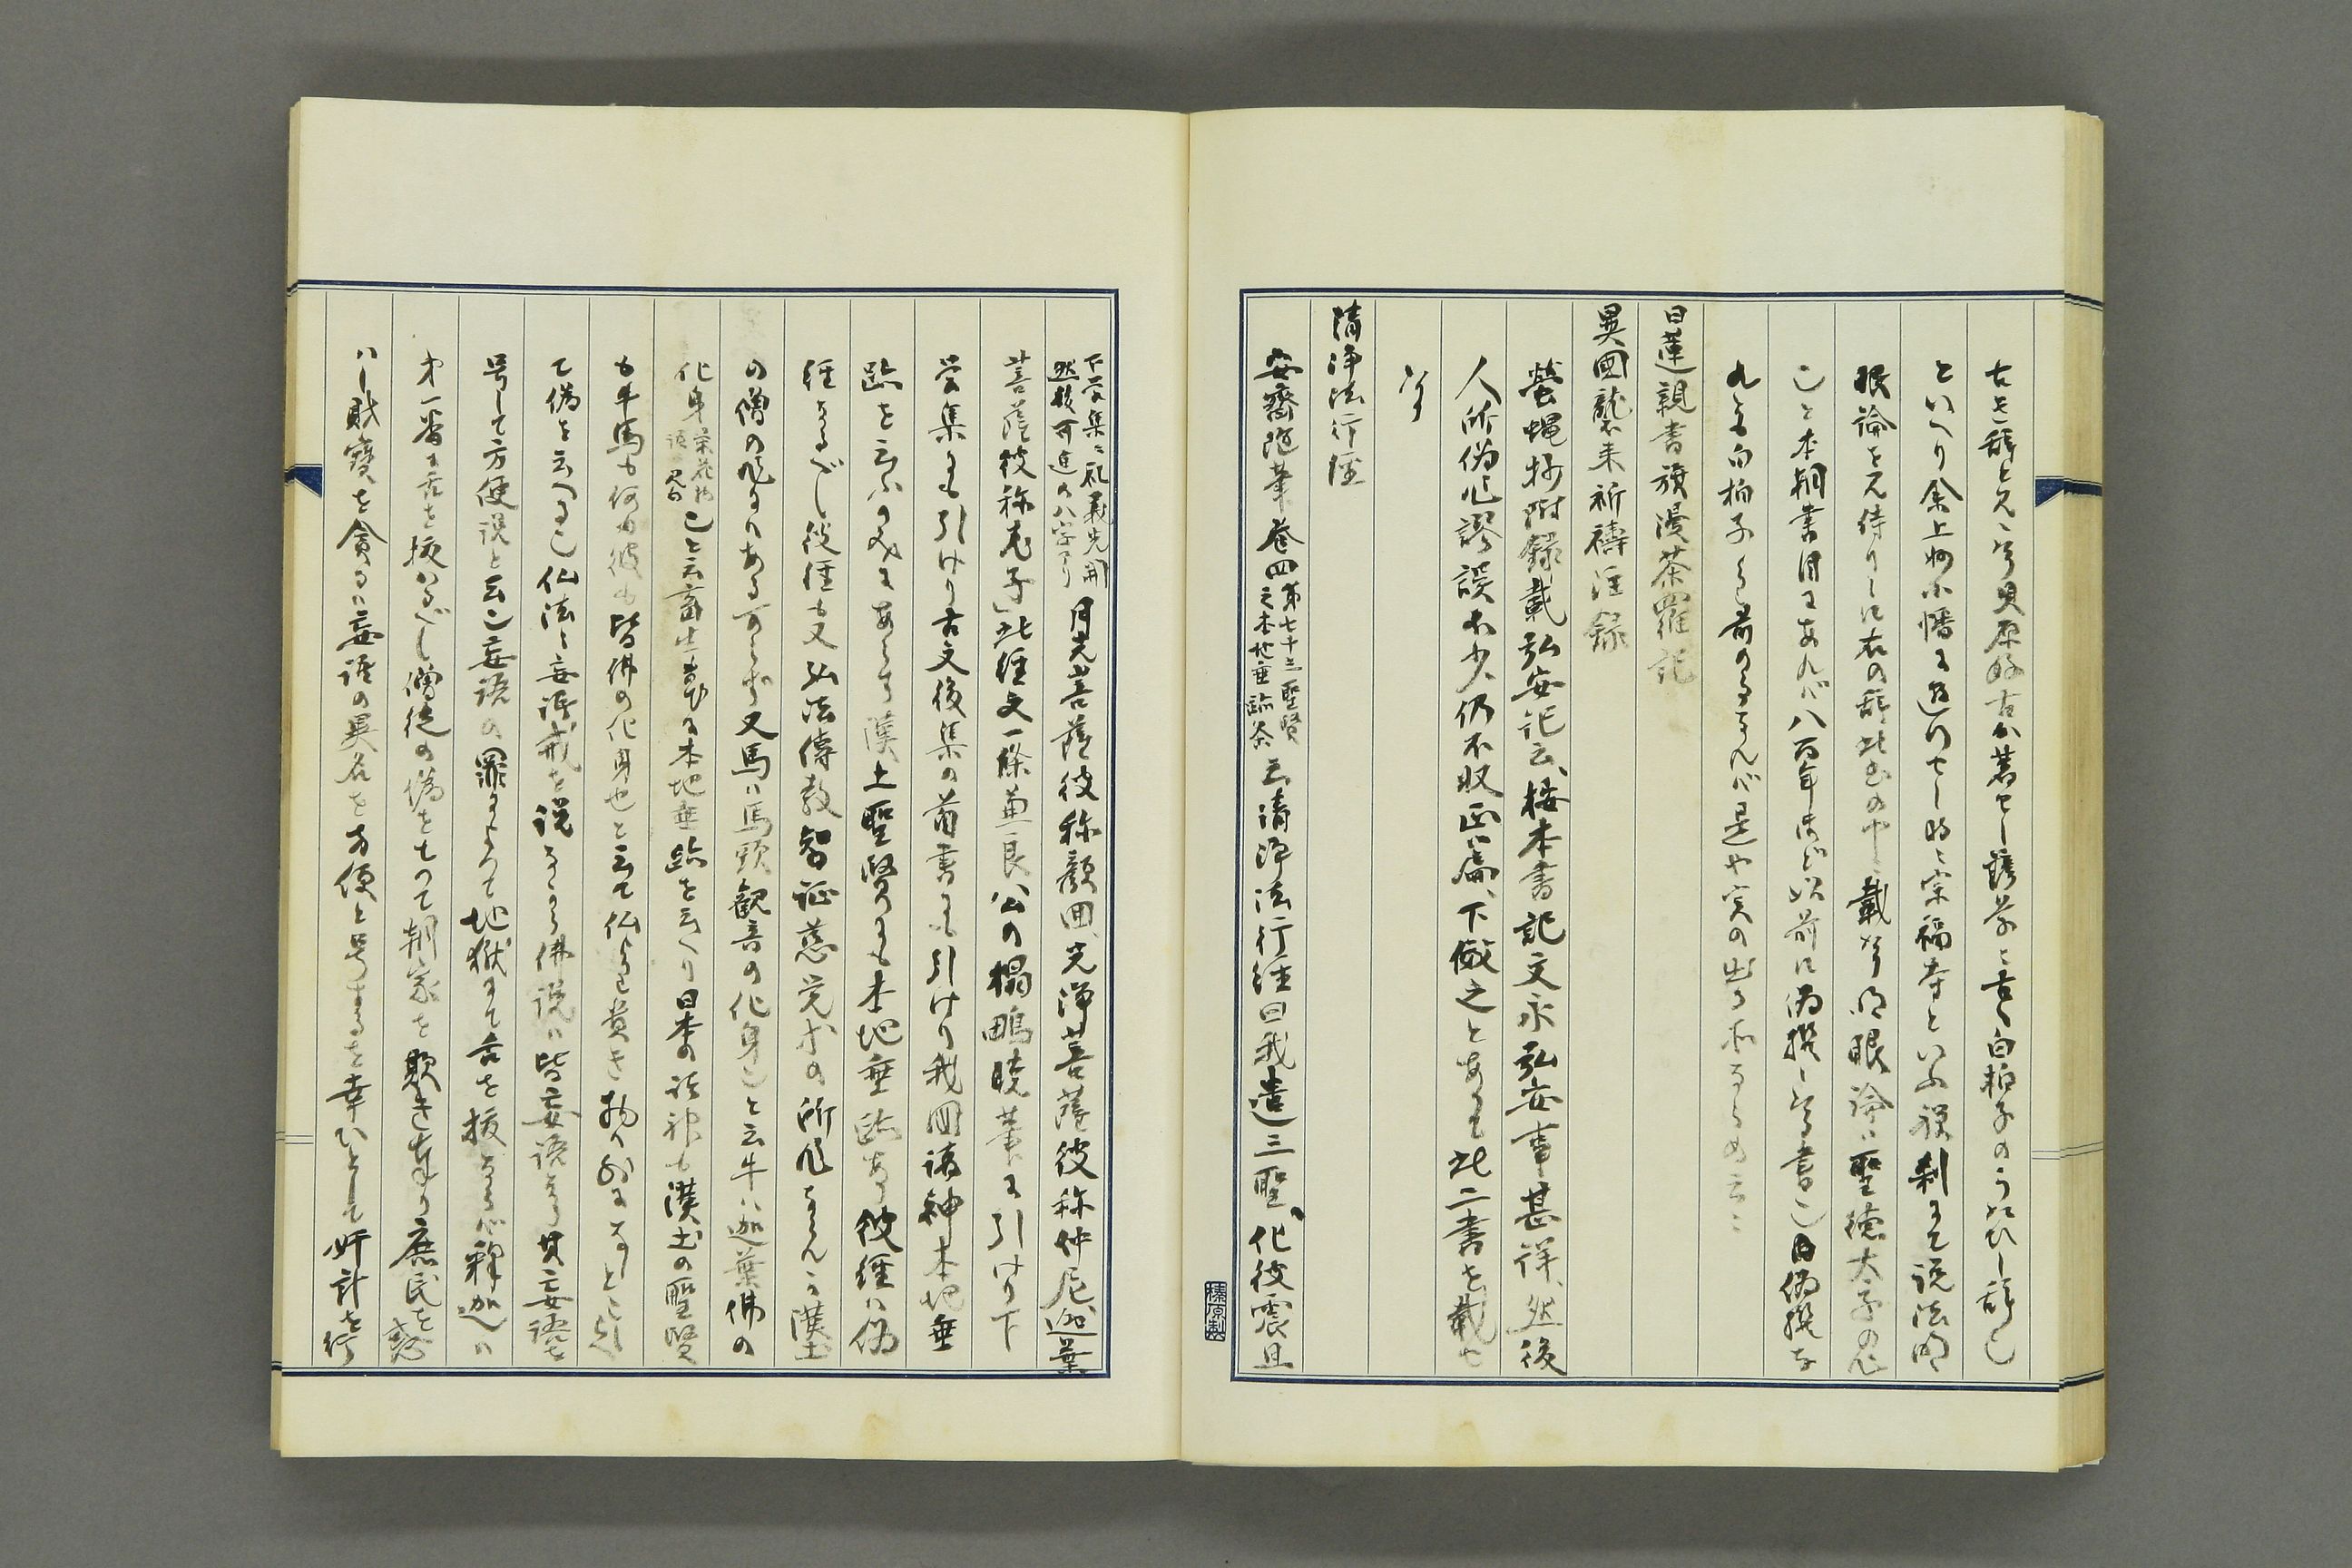 古き辞と見ゆ貝原好古か著せし諺草に古く白拍子のうたひし辞也
といへり余上州小幡に遊ひせし時に宗福寺といふ禅刹にて説法明
眼論を見侍りしに右の辞此書の中に載す明眼論は聖徳太子の作
こと本朝書目にあれバ八百年ほど以前に偽撰し書也偽撰な
れとも白拍子より前のなれバ是や実の出る所ならめ云云
日蓮親書旗漫荼羅記
異國襲来祈禱注録
螢蝿抄附録載弘安記云、按本書記文永弘安事甚詳、然後
人所偽作謬誤不少、仍不収正篇、下傚之とありて此二書を載せ
清浄法行経
安齋随筆巻四 第七十三聖賢
之本地垂跡条 云清浄法行経曰我遣三聖、化彼震旦
下学集ニ礼義先開
然後可迄の八字アリ 月光菩薩彼称顔回、光浄菩薩彼称仲尼、迦葉
菩薩彼称老子、此経文一條兼良公の榻鴫暁筆に引けり下
学集にも引けり古文後集の首書にも引けり我国諸神本地垂
跡を云ふのみにあらす漢土聖賢にも本地垂跡あり彼経ハ偽
経なるべし彼経も又弘法傳教智証慈覚等の所作ならんか漢土
の僧の作にハあるべからず又馬ハ馬頭観音の化身と云牛ハ迦葉佛の
化身 と云畜生までも本地垂跡を云へり日本の諸神も漢土の聖賢
も牛馬も何も彼も皆佛の化身也と云て仏より貴き物ハ外になしと
て偽を云へる也仏法ニ妄語戒を説きなから佛説ハ皆妄語なり其妄語を
号して方便説と云ふ妄語の罪によりて地獄にて舌を抜るならバ釋迦ハ
第一番に舌を抜るべし僧徒の偽をもつて朝家を欺き奉り庶民を惑
ハし財寶を貪るハ妄語の異名を方便と号するを幸ひとして奸計を行
榛原製